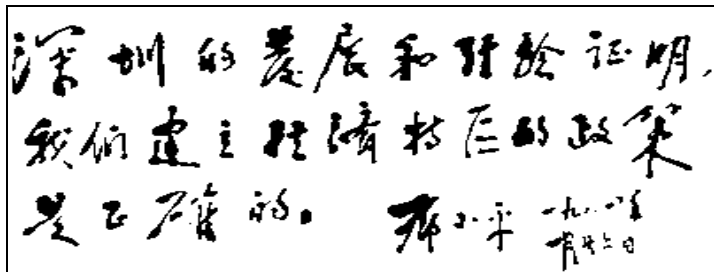 深圳的發展和经验证明,
我们建立经濟特区的政策
是正確的。 邓小平 一九八四年
一月廿六日